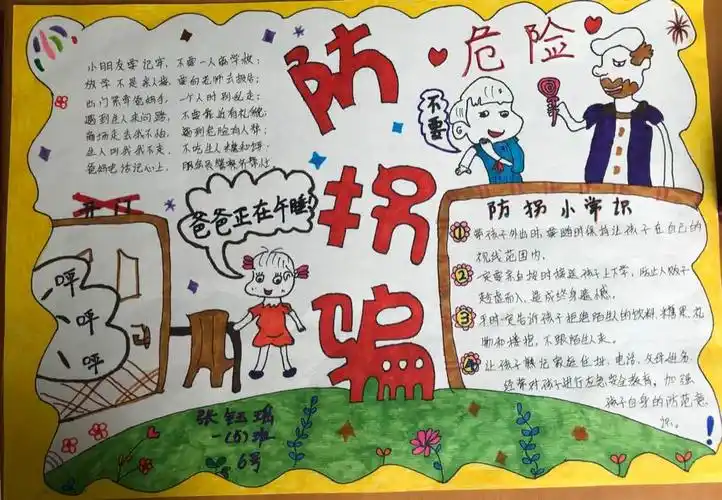 防
拐
骗
危险
不要
小朋友要记牢，不要一人留学校；
放学不是亲人接，要向老师去报告；
出门紧牵爸妈手，一个人时别乱走；
遇到生人来问路，不要靠近有礼貌；
商场走丢我不怕，遇到危险有人帮；
生人叫我我不走，不吃生人糖和饼；
爸妈电话记心上，
开门
爸爸正在午睡
呼
呼
呼
防拐小常识
1 带孩子外出时，要随时保持让孩子在自己的
视线范围内。
2 一定要亲自按时接送孩子上下学，防止人贩子
趁虚而入，造成终身遗憾。
3 平时一定告诉孩子拒绝陌生人的饮料、糖果、礼
物和搂抱，不跟陌生人走。
4 让孩子熟记家庭住址、电话、父母姓名。
经常对孩子进行应急安全教育，加强
孩子自身的防范意
识。
张钰瑶
一(5)班
6号